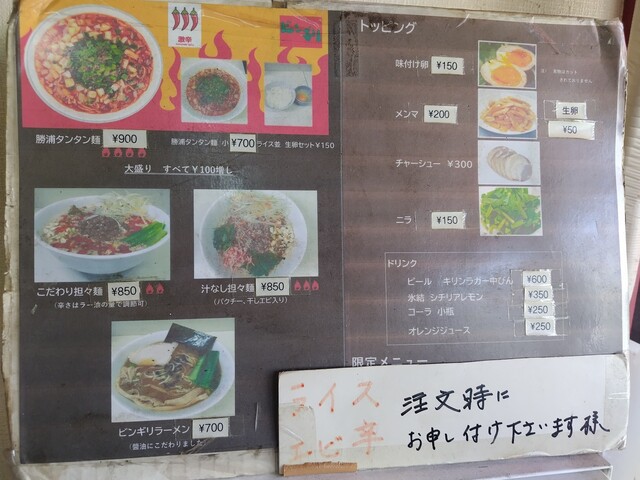 激辛
勝浦タンタン麺 ¥900
勝浦タンタン麺 小 ¥700 ライス並 生卵セット¥150
大盛り すべて¥100増し
こだわり担々麺 ¥850
(辛さはラー油の量で調節可)
汁なし担々麺 ¥850
(パクチー、干しエビ入り)
ビンギリラーメン ¥700
(醤油にこだわりました)
トッピング
味付け卵 ¥150
メンマ ¥200
生卵
¥50
チャーシュー ¥300
ニラ ¥150
ドリンク
ビール キリンラガー中びん ¥600
氷結 シチリアレモン ¥350
コーラ 小瓶 ¥250
オレンジジュース ¥250
限定メニュー
ライス
エビ辛
注文時に
お申し付け下さいます様